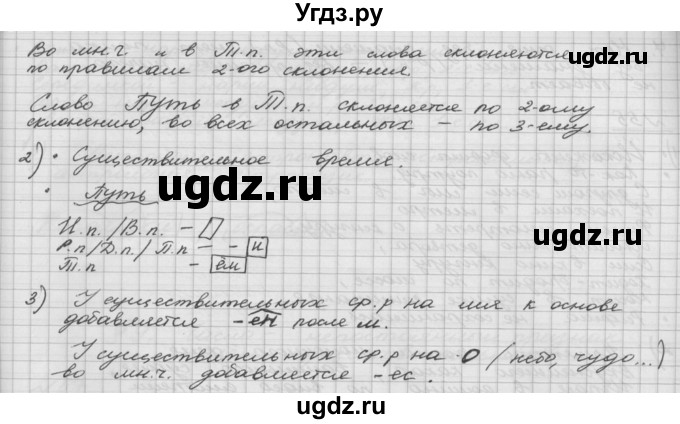 Угдз.ру
Во мн.ч. и в Т.п. эти слова склоняются
по правилам 2-ого склонения.
Слово Путь в Т.п. склоняется по 2-ому
склонению, во всех остальных – по 3-ему.
2) • Существительное время.
• Путь
И.п./В.п. –
Р.п/Д.п./П.п – - и
Т.п – ём
3) У существительных ср.р на мя к основе
добавляется -ен после м.
У существительных ср.р на -о (небо, чудо...)
во мн.ч. добавляется -ес.
ugdz.ru
ugdz.ru
ugdz.ru
ugdz.ru
ugdz.ru
ugdz.ru
ugdz.ru